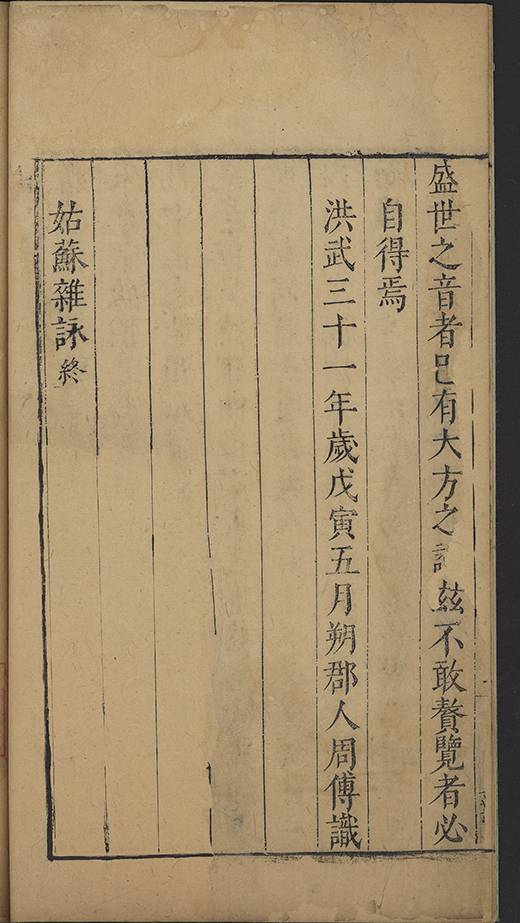 盛世之音者已有大方之兹不敢贅覽者必
自得焉
洪武三十一年歲戊寅五月朔郡人周傅識
姑蘇雜詠終